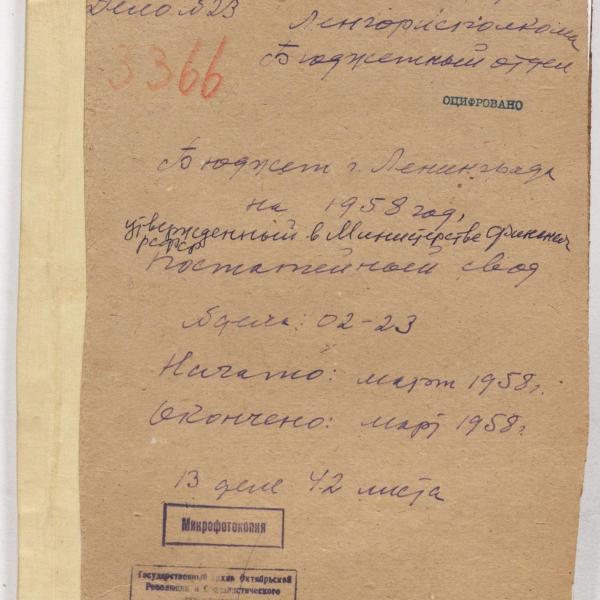 Дело № 23
Ленгорисполкома
Бюджетный отдел
3366
ОЦИФРОВАНО
Бюджет г. Ленинграда
на 1958 год,
утвержденный в Министерстве Финансов
РСФСР
Постатейный свод
02-23
Начато: март 1958г.
Окончено: март 1958г.
В деле 42 листа
Микрофотокопия
Государственный архив Октябрьской
Революции и Социалистического